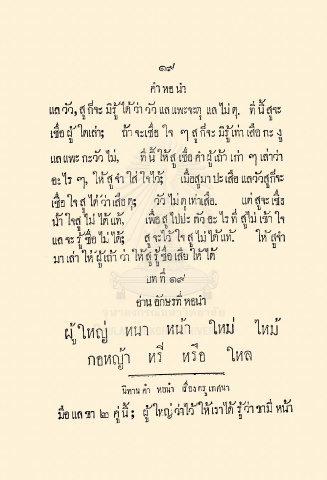 ๑๙
คำ หอ นำ
แล วัว, สู ก็จะ มิรู้ ได้ ว่า วัว แล แพะ จะดุ แล ไม่ ดุ. ที่ นี้ สู จะ
เชื่อ ผู้ ใดเล่า; ถ้า จะเชื่อ ใจ ๆ สู ก็จะ มิรู้ เท่า เสือ กะ งู
แล แพะ กะวัว ไม่, ที่ นี้ ให้ สู เชื่อ คำ ผู้ เถ้า เก่า ๆ เล่าว่า
อะไร ๆ, ให้ สู จำ ใส่ ใจไว้; เมื่อสูมา ปะเสือ แลวัวสู ก็จะ
เชื่อ ใจ สู ได้ ว่า เสือ ดุ; วัว ไม่ ดุ เท่าเสือ. แต่ สู จะ เชื่อ
น้ำ ใจสู ไม่ ได้ แท้, เพื่อ สู ไปปะ ตัว อะ ไร ที่ สู ไม่ เข้า ใจ
แล จะ รู้ ชื่อ ไม่ ได้; สู จะไว้ ใจ สู ไม่ ได้ แท้. ให้ สู จำ
มา เล่า ให้ ผู้ เถ้า ว่า ให้ สู รู้ ชื่อ เสีย ให้ ได้
บท ที่ ๑๙
อ่าน อักษรที่ หอนำ
ผู้ ใหญ่ หนา หน้า ใหม่ ไหม้
กอหญ้า หรี่ หรือ ไหล
นิทาน คำ หอนำ เรื่อง ครู เทศนา
มือ แล ขา ๒ คู่ นี้; ผู้ ใหญ่ ว่าไว้ ให้ เราได้ รู้ ว่า ขามี หน้า